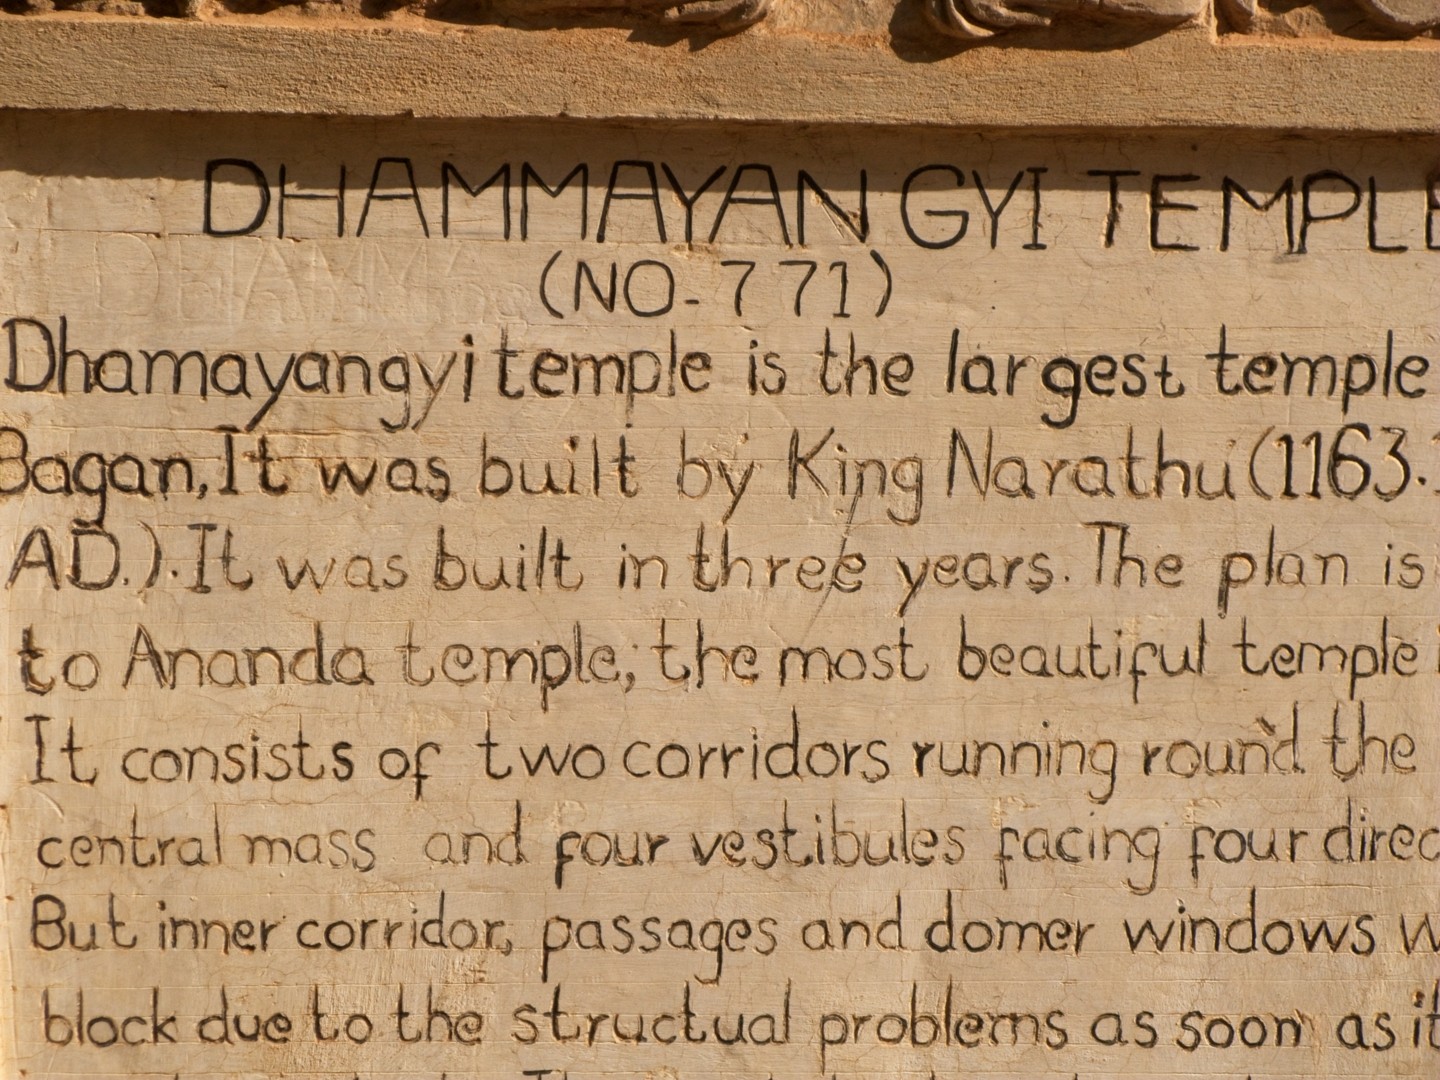 DHAMMAYAN GYI TEMPLE
(NO-771)
Dhamayangyi temple is the largest temple
Bagan, It was built by King Narathu (1163.
AD.). It was built in three years. The plan is
to Ananda temple, the most beautiful temple
It consists of two corridors running round the
central mass and four vestibules facing four direc
But inner corridor, passages and domer windows w
block due to the structual problems as soon as it